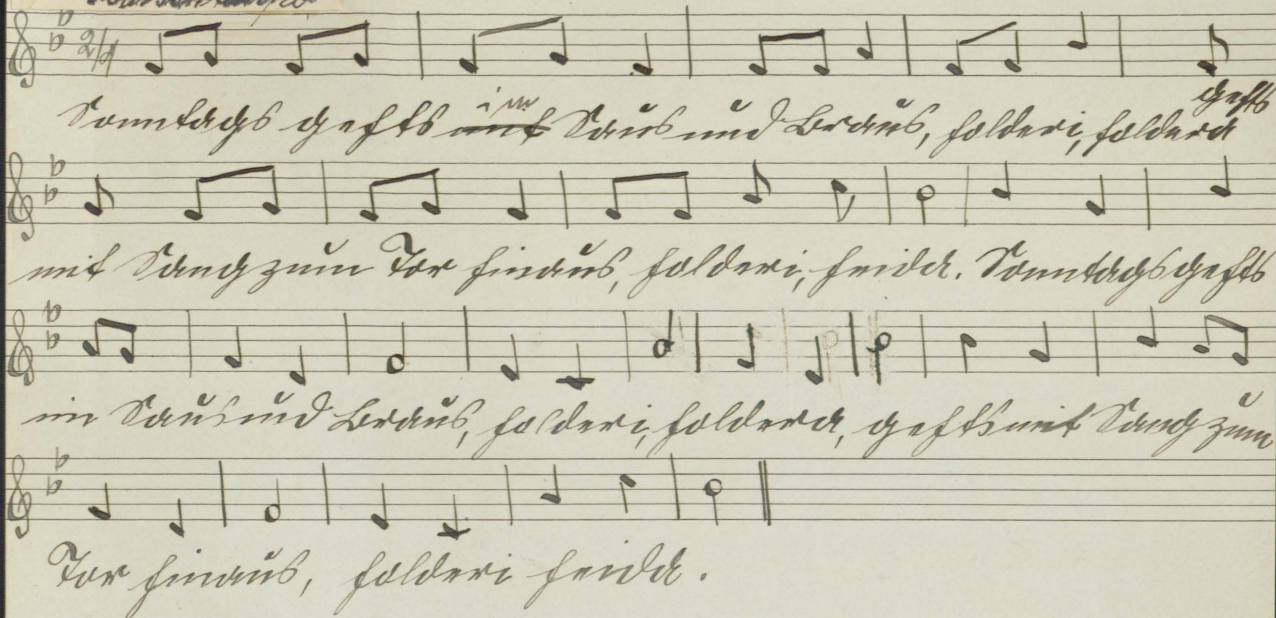 2/4
gehts
Sonntags gehts mit im Saus und Braus, falderi, faldera
mit Sang zum Tor hinaus, falderi, heida. Sonntags gehts
im Saus und Braus, falderi, faldera, gehts mit Sang zum
Tor hinaus, falderi heida.